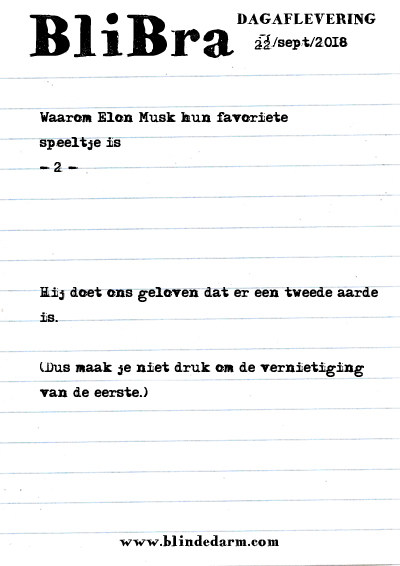 BliBra
DAGAFLEVERING
22/sept/2018
Waarom Elon Musk hun favoriete
speeltje is
- 2 -
Hij doet ons geloven dat er een tweede aarde
is.
(Dus maak je niet druk om de vernietiging
van de eerste.)
www.blindedarm.com